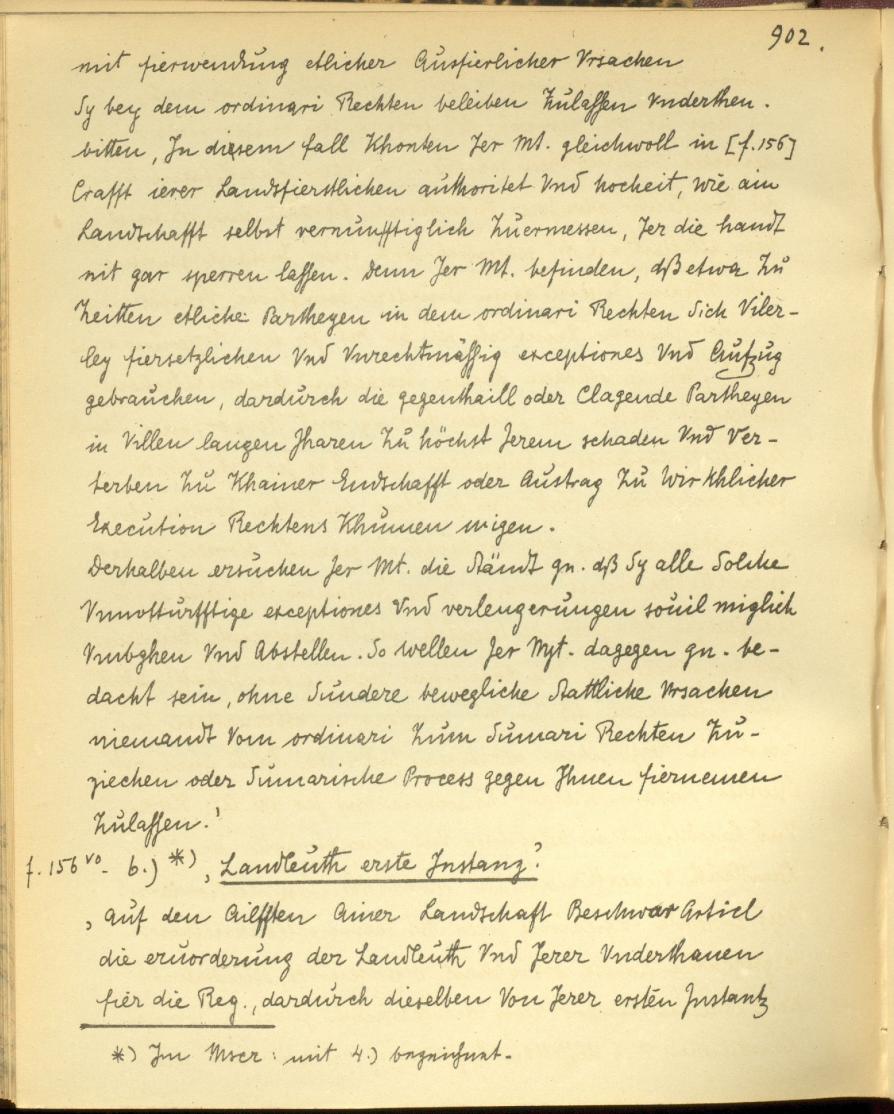 902.
mit fierwendung etlicher Ausfierlicher Vrsachen
Sy bey dem ordinari Rechten beleiben Zulassen vnderthen.
bitten, In diesem fall Khonten Jer Mt. gleichwoll in [f. 156]
Crafft ierer Landsfierstlichen authoritet Vnd hocheit, wie ain
Landschafft selbst vernunfftiglich Zuermessen, Jer die handt
nit gar sperren lassen. Denn Jer Mt. befinden, dß etwa Zu
Zeitten etliche Partheyen in dem ordinari Rechten Sich Viler-
ley fiersetzlichen Vnd Vnrechtmässig exceptiones Vnd Aufzug
gebrauchen, dardurch die gegenthaill oder Clagende Partheyen
in Villen langen Jharen Zu höchst Jerem schaden Vnd Ver-
terben Zu Khainer Endschafft oder Austrag Zu Wirkhlicher
Execution Rechtens Khumen migen.
Derhalben ersuchen Jer Mt. die Ständt gn. dß Sy alle Solche
Vnnotturfftige exceptiones Vnd verlengerungen souil miglich
Vmbghen Vnd Abstellen. So wellen Jer Myt. dagegen gn. be-
dacht sein, ohne Sundere bewegliche Stattliche Vrsachen
niemandt Vom ordinari Zum Sumari Rechten Zu-
ziechen oder Sumarische Process gegen Ihnen fiernemen
Zulassen.'
f. 156 vo. 6.) *) ‚Landleuth erste Instanz?
‚Auf den Ailfften Ainer Landschaft Beschwar Articl
die eruorderung der Landleuth Vnd Jerer Vnderthanen
fier die Reg., dardurch dieselben Von Jerer ersten Instantz
*) Im Mscr: mit 4.) bezeichnet.